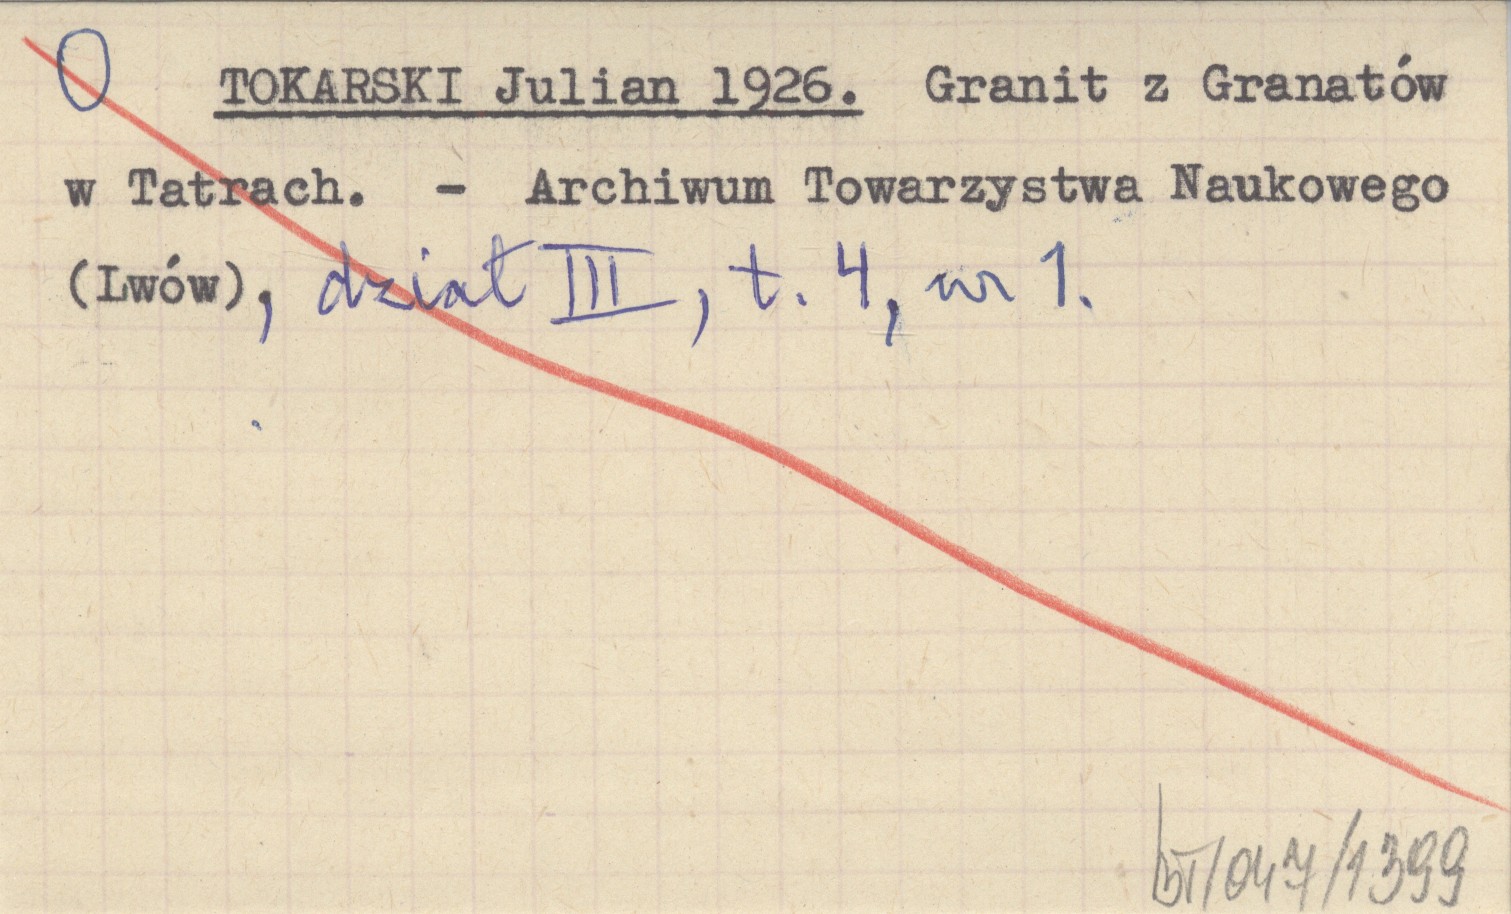 TOKARSKI Julian 1926. Granit z Granatów
w Tatrach. - Archiwum Towarzystwa Naukowego
(Lwów), dział III, t. 4, nr 1.
BT/047/1399